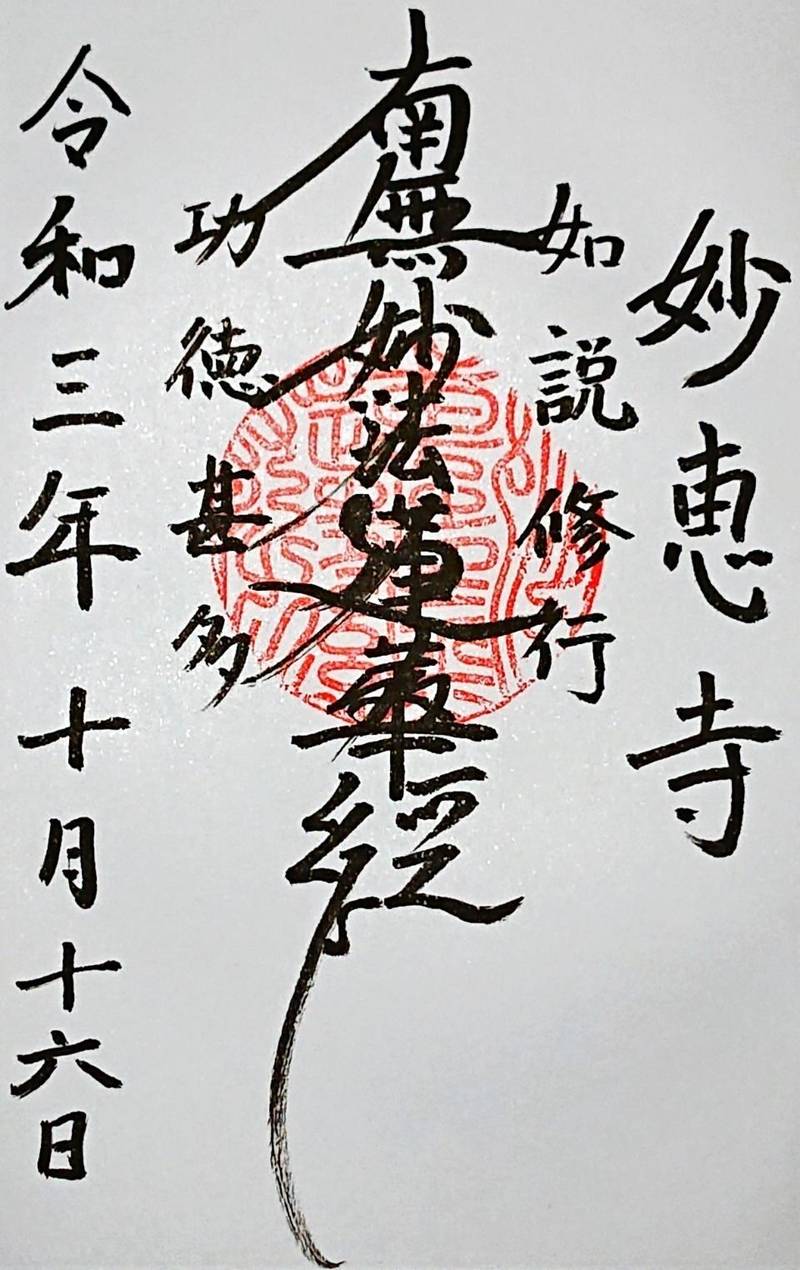 妙恵寺
如説修行
南無妙法蓮華経
功徳甚多
令和三年十月十六日